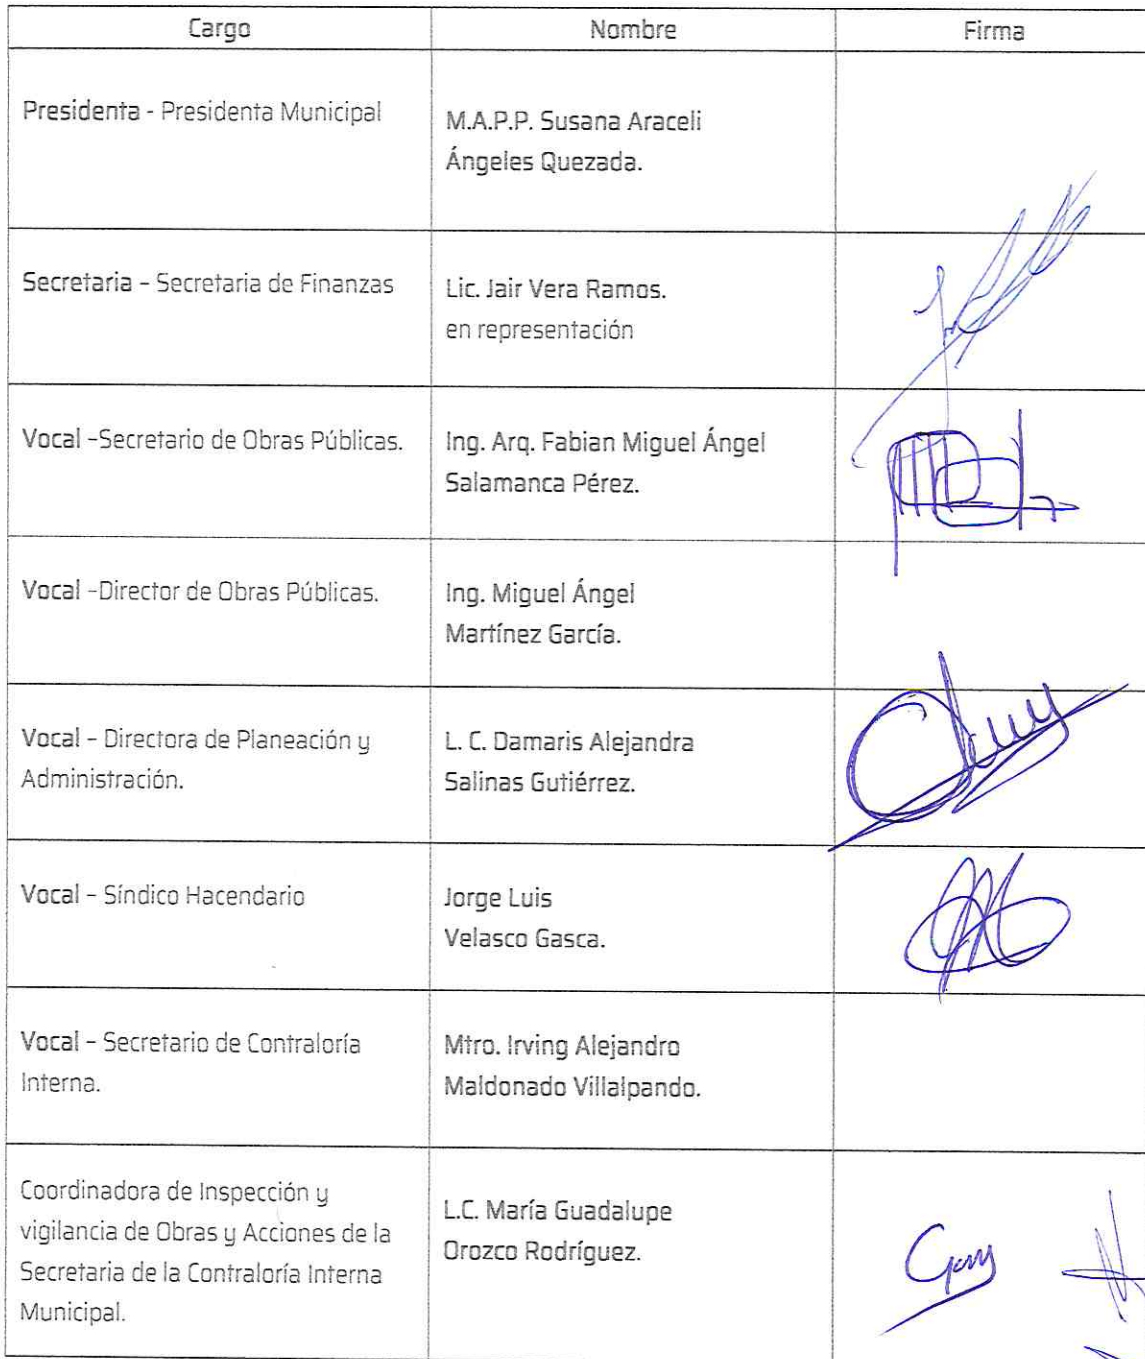 Cargo Nombre Firma
Presidenta - Presidenta Municipal
M.A.P.P. Susana Araceli
Ángeles Quezada.
Secretaria – Secretaria de Finanzas
Lic. Jair Vera Ramos.
en representación
Vocal –Secretario de Obras Públicas.
Ing. Arq. Fabian Miguel Ángel
Salamanca Pérez.
Vocal –Director de Obras Públicas.
Ing. Miguel Ángel
Martínez García.
Vocal – Directora de Planeación y
Administración.
L. C. Damaris Alejandra
Salinas Gutiérrez.
Vocal – Síndico Hacendario
Jorge Luis
Velasco Gasca.
Vocal – Secretario de Contraloría
Interna.
Mtro. Irving Alejandro
Maldonado Villalpando.
Coordinadora de Inspección y
vigilancia de Obras y Acciones de la
Secretaria de la Contraloría Interna
Municipal.
L.C. María Guadalupe
Orozco Rodríguez.